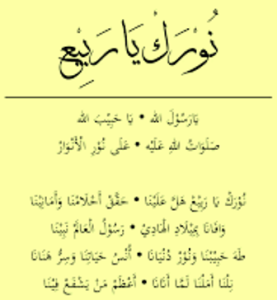 نُوْرَكْ يَا رَبِيْع
يَارَسُوْلَ الله • يَا حَبِيْبَ الله
صَلَوَاتُ اللهِ عَلَيْه • عَلَى نُوْرِ الْأَنْوَارْ
نُوْرَكْ يَا رَبِيْع هَلَّ عَلَيْنَا • حَقَّقْ أَحْلَامْنَا وَأَمَانِيْنَا
وَافَانَا بِمِيْلَادِ الْهَادِيْ • رَسُوْلُ الْعَالَمْ نَبِيْنَا
طَهَ حَبِيْبْنَا وَنُوْرْ دُنْيَانَا • أُنْسُ حَيَاتِنَا وَسِرُّ هَنَانَا
نِلْنَا أَمَلْنَا لَمَّا أَتَانَا • أَعْظَمْ مَنْ يَشْفَعُ فِيْنَا